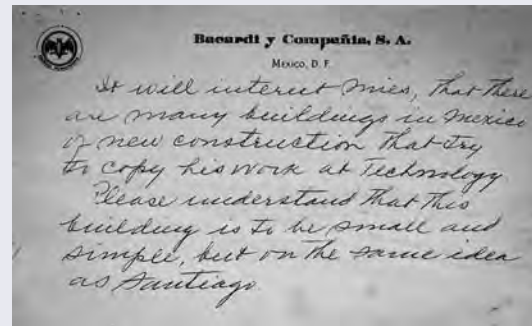 Bacardi y Compañia, S. A.
MEXICO, D. F.
It will interest mies, that there
are many buildings in mexico
of new construction that try
to copy his work at Technology
Please understand that this
building is to be small and
simple, but on the same idea
as Santiago.